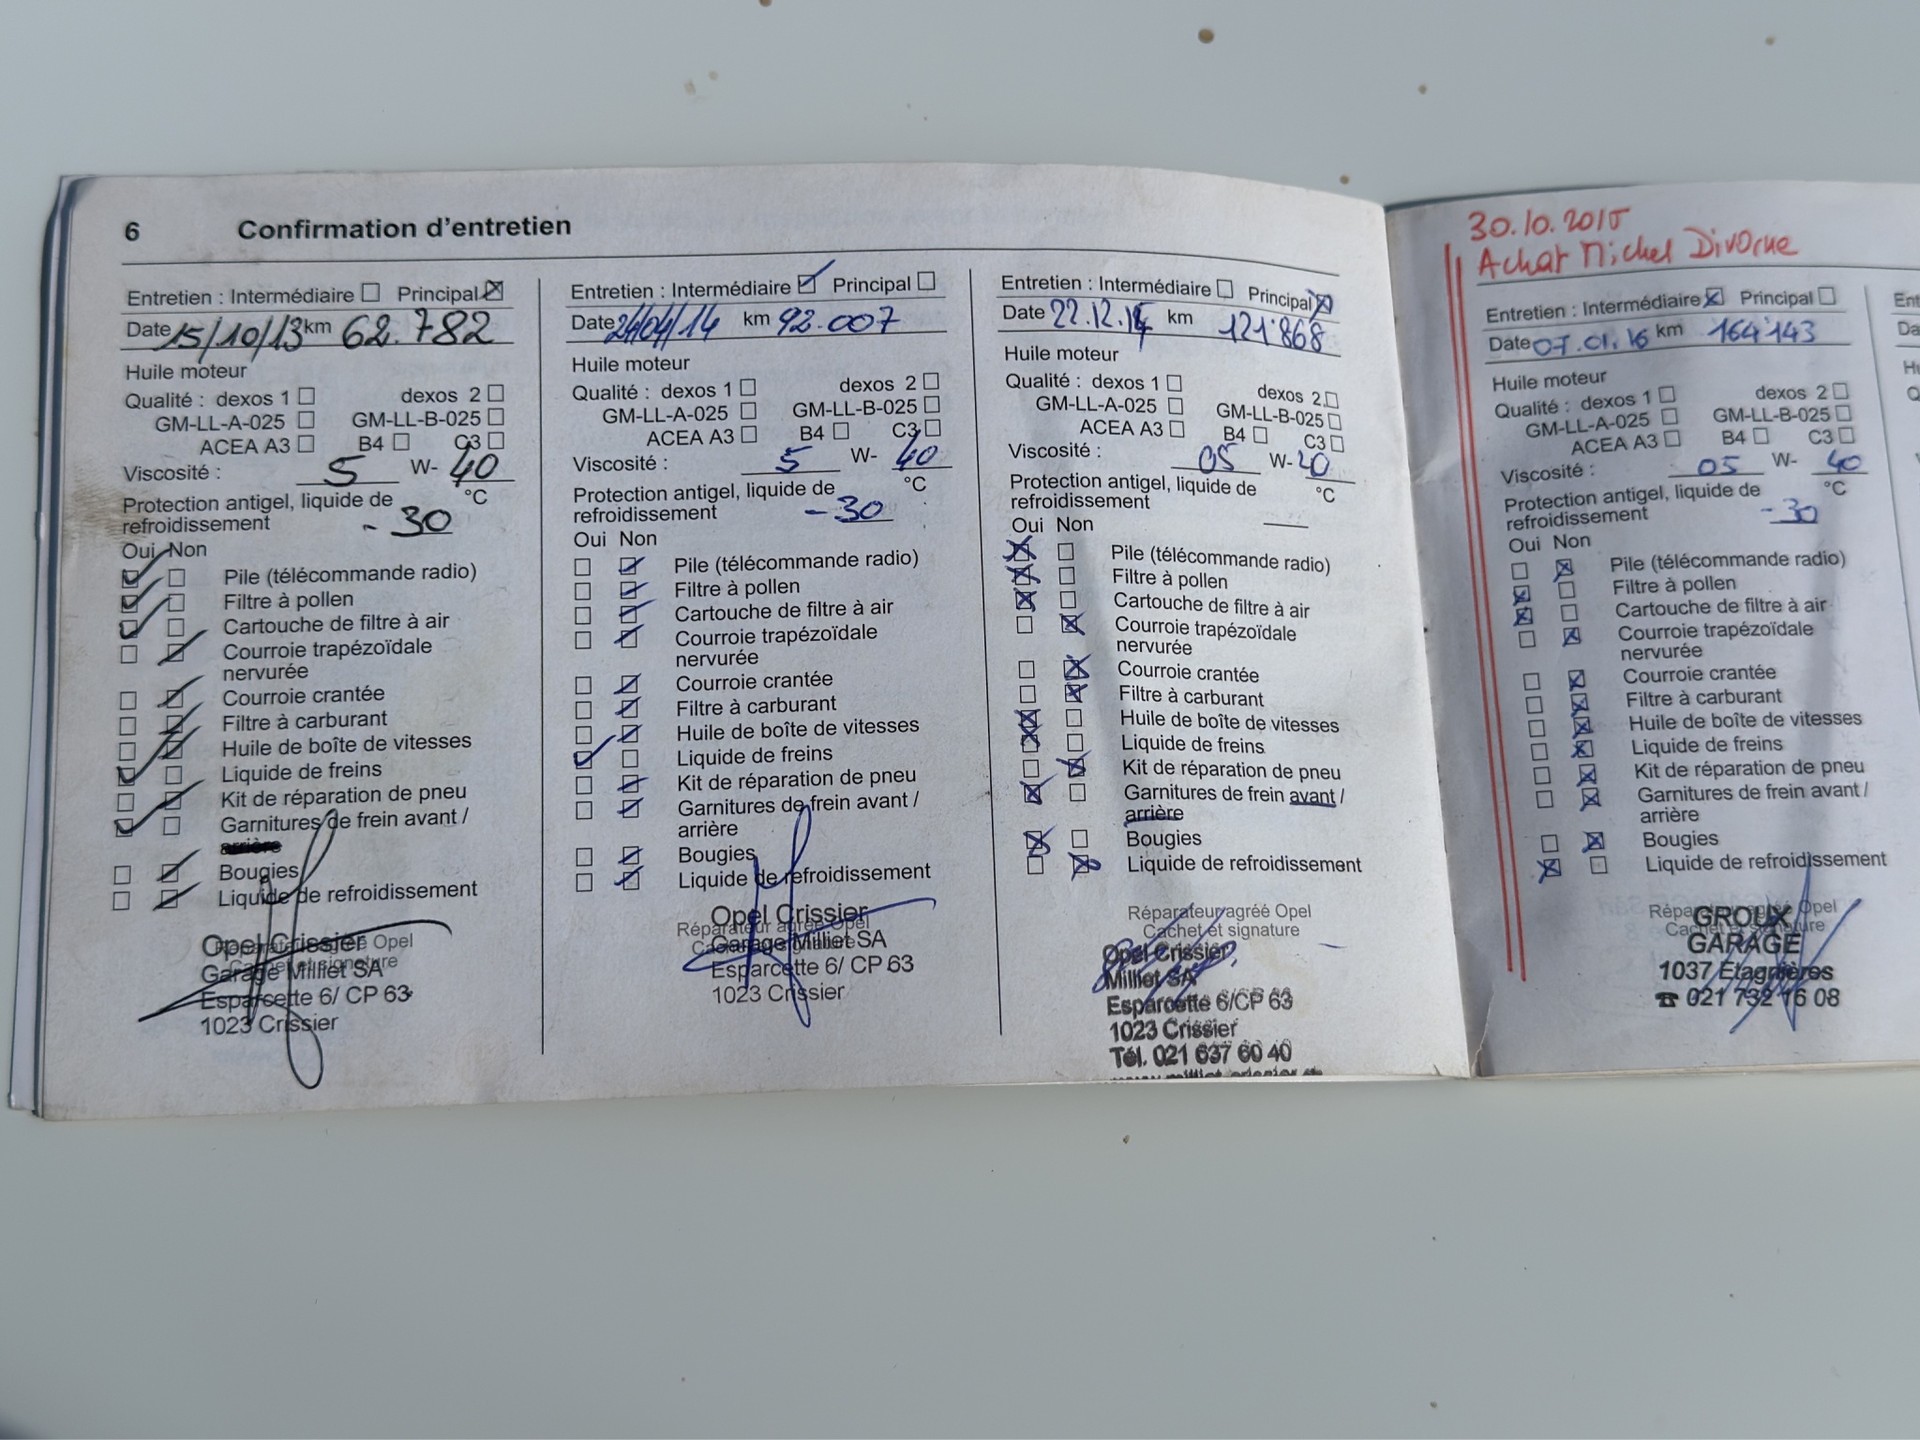 6 Confirmation d'entretien
Entretien : Intermédiaire ☐ Principal ☒
Date 15/10/13 km 62.782
Huile moteur
Qualité : dexos 1 ☐ dexos 2 ☐
GM-LL-A-025 ☐ GM-LL-B-025 ☐
ACEA A3 ☐ B4 ☐ C3 ☐
Viscosité : 5 W- 40
Protection antigel, liquide de °C
refroidissement - 30
Oui Non
☑ ☐ Pile (télécommande radio)
☑ ☐ Filtre à pollen
☑ ☐ Cartouche de filtre à air
☐ ☑ Courroie trapézoïdale
nervurée
☐ ☑ Courroie crantée
☐ ☑ Filtre à carburant
☐ ☑ Huile de boîte de vitesses
☑ ☐ Liquide de freins
☐ ☑ Kit de réparation de pneu
☑ ☐ Garnitures de frein avant /
arrière
☐ ☑ Bougies
☐ ☑ Liquide de refroidissement
Réparateur agréé Opel
Cachet et signature
Opel Crissier
Garage Milliet SA
Esparcette 6/ CP 63
1023 Crissier
Entretien : Intermédiaire ☑ Principal ☐
Date 24/04/14 km 92.007
Huile moteur
Qualité : dexos 1 ☐ dexos 2 ☐
GM-LL-A-025 ☐ GM-LL-B-025 ☐
ACEA A3 ☐ B4 ☐ C3 ☐
Viscosité : 5 W- 40
Protection antigel, liquide de °C
refroidissement - 30
Oui Non
☐ ☑ Pile (télécommande radio)
☐ ☑ Filtre à pollen
☐ ☑ Cartouche de filtre à air
☐ ☑ Courroie trapézoïdale
nervurée
☐ ☑ Courroie crantée
☐ ☑ Filtre à carburant
☐ ☑ Huile de boîte de vitesses
☑ ☐ Liquide de freins
☐ ☑ Kit de réparation de pneu
☐ ☑ Garnitures de frein avant /
arrière
☐ ☑ Bougies
☐ ☑ Liquide de refroidissement
Réparateur agréé Opel
Cachet et signature
Opel Crissier
Garage Milliet SA
Esparcette 6/ CP 63
1023 Crissier
Entretien : Intermédiaire ☐ Principal ☒
Date 22.12.14 km 121'868
Huile moteur
Qualité : dexos 1 ☐ dexos 2 ☐
GM-LL-A-025 ☐ GM-LL-B-025 ☐
ACEA A3 ☐ B4 ☐ C3 ☐
Viscosité : 05 W- 40
Protection antigel, liquide de °C
refroidissement
Oui Non
☒ ☐ Pile (télécommande radio)
☒ ☐ Filtre à pollen
☒ ☐ Cartouche de filtre à air
☐ ☒ Courroie trapézoïdale
nervurée
☐ ☒ Courroie crantée
☐ ☒ Filtre à carburant
☒ ☐ Huile de boîte de vitesses
☒ ☐ Liquide de freins
☐ ☒ Kit de réparation de pneu
☒ ☐ Garnitures de frein avant /
arrière
☒ ☐ Bougies
☐ ☒ Liquide de refroidissement
Réparateur agréé Opel
Cachet et signature
Opel Crissier
Milliet SA
Esparcette 6/CP 63
1023 Crissier
Tél. 021 637 60 40
30.10.2015
Achat Michel Divorne
Entretien : Intermédiaire ☒ Principal ☐
Date 07.01.16 km 164'143
Huile moteur
Qualité : dexos 1 ☐ dexos 2 ☐
GM-LL-A-025 ☐ GM-LL-B-025 ☐
ACEA A3 ☐ B4 ☐ C3 ☐
Viscosité : 05 W- 40
Protection antigel, liquide de °C
refroidissement - 30
Oui Non
☐ ☒ Pile (télécommande radio)
☒ ☐ Filtre à pollen
☒ ☐ Cartouche de filtre à air
☐ ☒ Courroie trapézoïdale
nervurée
☐ ☒ Courroie crantée
☐ ☒ Filtre à carburant
☐ ☒ Huile de boîte de vitesses
☐ ☒ Liquide de freins
☐ ☒ Kit de réparation de pneu
☐ ☒ Garnitures de frein avant /
arrière
☐ ☒ Bougies
☒ ☐ Liquide de refroidissement
Réparateur agréé Opel
Cachet et signature
GROUX
GARAGE
1037 Etagnières
☎ 021 732 16 08